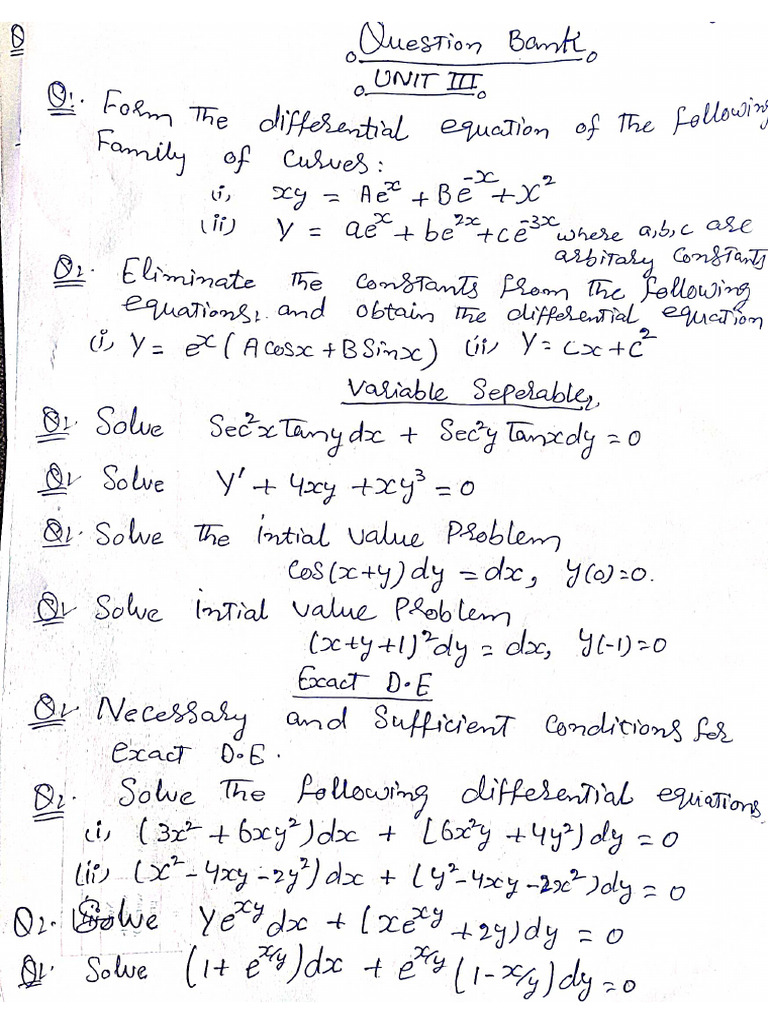 Q
Question Bank
UNIT III
Q1. Form the differential equation of the following
Family of curves:
(i) xy = Ae^x + Be^-x + x^2
(ii) Y = ae^x + be^2x + ce^-3x where a,b,c are
arbitary constants
Q2. Eliminate the constants from the following
equations, and obtain the differential equation
(i) Y = e^x (A cosx + B Sinx) (ii) Y = cx + c^2
Variable Seperable
Q1 Solve Sec^2x Tany dx + Sec^2y Tanx dy = 0
Q2 Solve Y' + 4xy + xy^3 = 0
Q2. Solve the intial value Problem
Cos(x+y) dy = dx, y(0)=0.
Q2 Solve intial value Problem
(x+y+1)^2 dy = dx, y(-1)=0
Exact D.E
Q1 Necessary and Sufficient Conditions for
exact D.E.
Q2. Solve the following differential equations
(i) (3x^2 + 6xy^2)dx + (6x^2y + 4y^2)dy = 0
(ii) (x^2 - 4xy - 2y^2)dx + (y^2 - 4xy - 2x^2)dy = 0
Q2. Solve Ye^xy dx + (xe^xy + 2y)dy = 0
Q2. Solve (1 + e^x/y)dx + e^x/y (1 - x/y)dy = 0